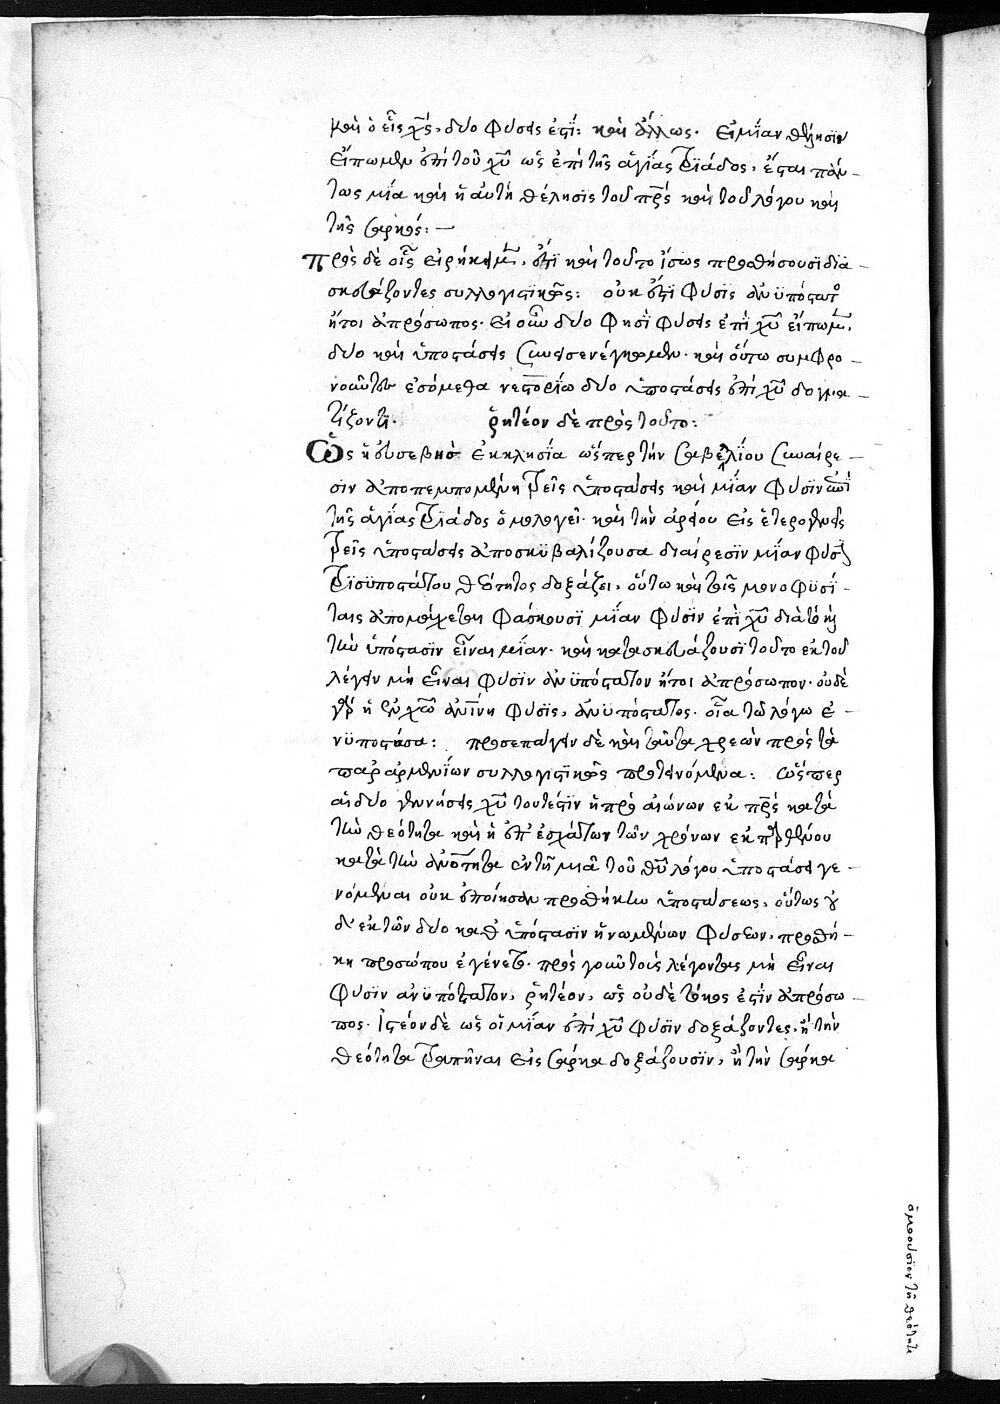 καὶ ὁ εἷς χς, δύο φύσεις ἐστί: καὶ ἄλλως. εἰ μίαν θέλησιν
εἴπωμεν ἐπὶ τοῦ χυ ὡς ἐπὶ τῆς ἁγίας τριάδος, ἔσται πάν-
τως μία καὶ ἡ αὐτὴ θέλησις τοῦ πρς καὶ τοῦ λόγου καὶ
τῆς σαρκός: —
πρὸς δὲ οἷς εἰρήκαμεν, ἔτι καὶ τοῦτο ἴσως προσθήσουσι δια-
σκευάζοντες συλλογιστικῶς: οὐκ ἔστι φύσις ἀνυπόστατος
ἤτοι ἀπρόσωπος. εἰ οὖν δύο φησὶ φύσεις ἐπὶ χυ εἴπωμεν,
δύο καὶ ὑποστάσεις συνεισενέγκωμεν. καὶ οὕτω συμφρο-
νοῦντες ἐσόμεθα νεστορίω δύο ὑποστάσεις ἐπὶ χυ δογμα-
τίζοντι. ῥητέον δὲ πρὸς τοῦτο:
Ὡς ἡ εὐσεβὴς ἐκκλησία ὥσπερ τὴν σαβελίου συναίρε-
σιν ἀποπεμπομένη τρεῖς ὑποστάσεις καὶ μίαν φύσιν ἐπὶ
τῆς ἁγίας τριάδος ὁμολογεῖ. καὶ τὴν ἀρείου εἰς ἑτερογενεῖς
τρεῖς ὑποστάσεις ἀποσκυβαλίζουσα διαίρεσιν μίαν φύσιν
τρισυποστάτου θεότητος δοξάζει, οὕτω καὶ τοῖς μονοφυσί-
ταις ἀπομάχεται φάσκουσι μίαν φύσιν ἐπὶ χυ διὰ τὸ καὶ
τὴν ὑπόστασιν εἶναι μίαν. καὶ κατασκευάζουσι τοῦτο ἐκ τοῦ
λέγειν μὴ εἶναι φύσιν ἀνυπόστατον ἤτοι ἀπρόσωπον. οὐδὲ
γὰρ ἡ ἐν χω ανίνη φύσις, ἀνυπόστατος. οἷα τῶ λόγω ἐ-
νυποστᾶσα: προσεπάγειν δὲ καὶ ταῦτα χρεὼν πρὸς τὰ
παρ' ἀρμενίων συλλογιστικῶς προτεινόμενα: ὥσπερ
αἱ δύο γεννήσεις χυ τουτέστιν ἡ πρὸ αἰώνων ἐκ πρς κατὰ
τὴν θεότητα καὶ ἡ ἐπ' ἐσχάτων τῶν χρόνων ἐκ παρθένου
κατὰ τὴν ἀνότητα ἐν τῆ μιᾶ τοῦ θυ λόγου ὑποστάσει γε-
νόμεναι οὐκ ἐποίησαν προσθήκην ὑποστάσεως, οὕτως οὐ
δ' ἐκ τῶν δύο καθ' ὑπόστασιν ἡνωμένων φύσεων, προσθή-
κη προσώπου ἐγένετο. πρὸς γοῦν τοὺς λέγοντας μὴ εἶναι
φύσιν ἀνυπόστατον, ῥητέον, ὡς οὐδὲ τόκος ἐστὶν ἀπρόσω-
πος. Ἰστέον δὲ ὡς οἱ μίαν ἐπὶ χυ φύσιν δοξάζοντες, ἢ τὴν
θεότητα τραπῆναι εἰς σάρκα δοξάζουσιν, ἢ τὴν σάρκα
ὁμοούσιον τῆ θεότητι